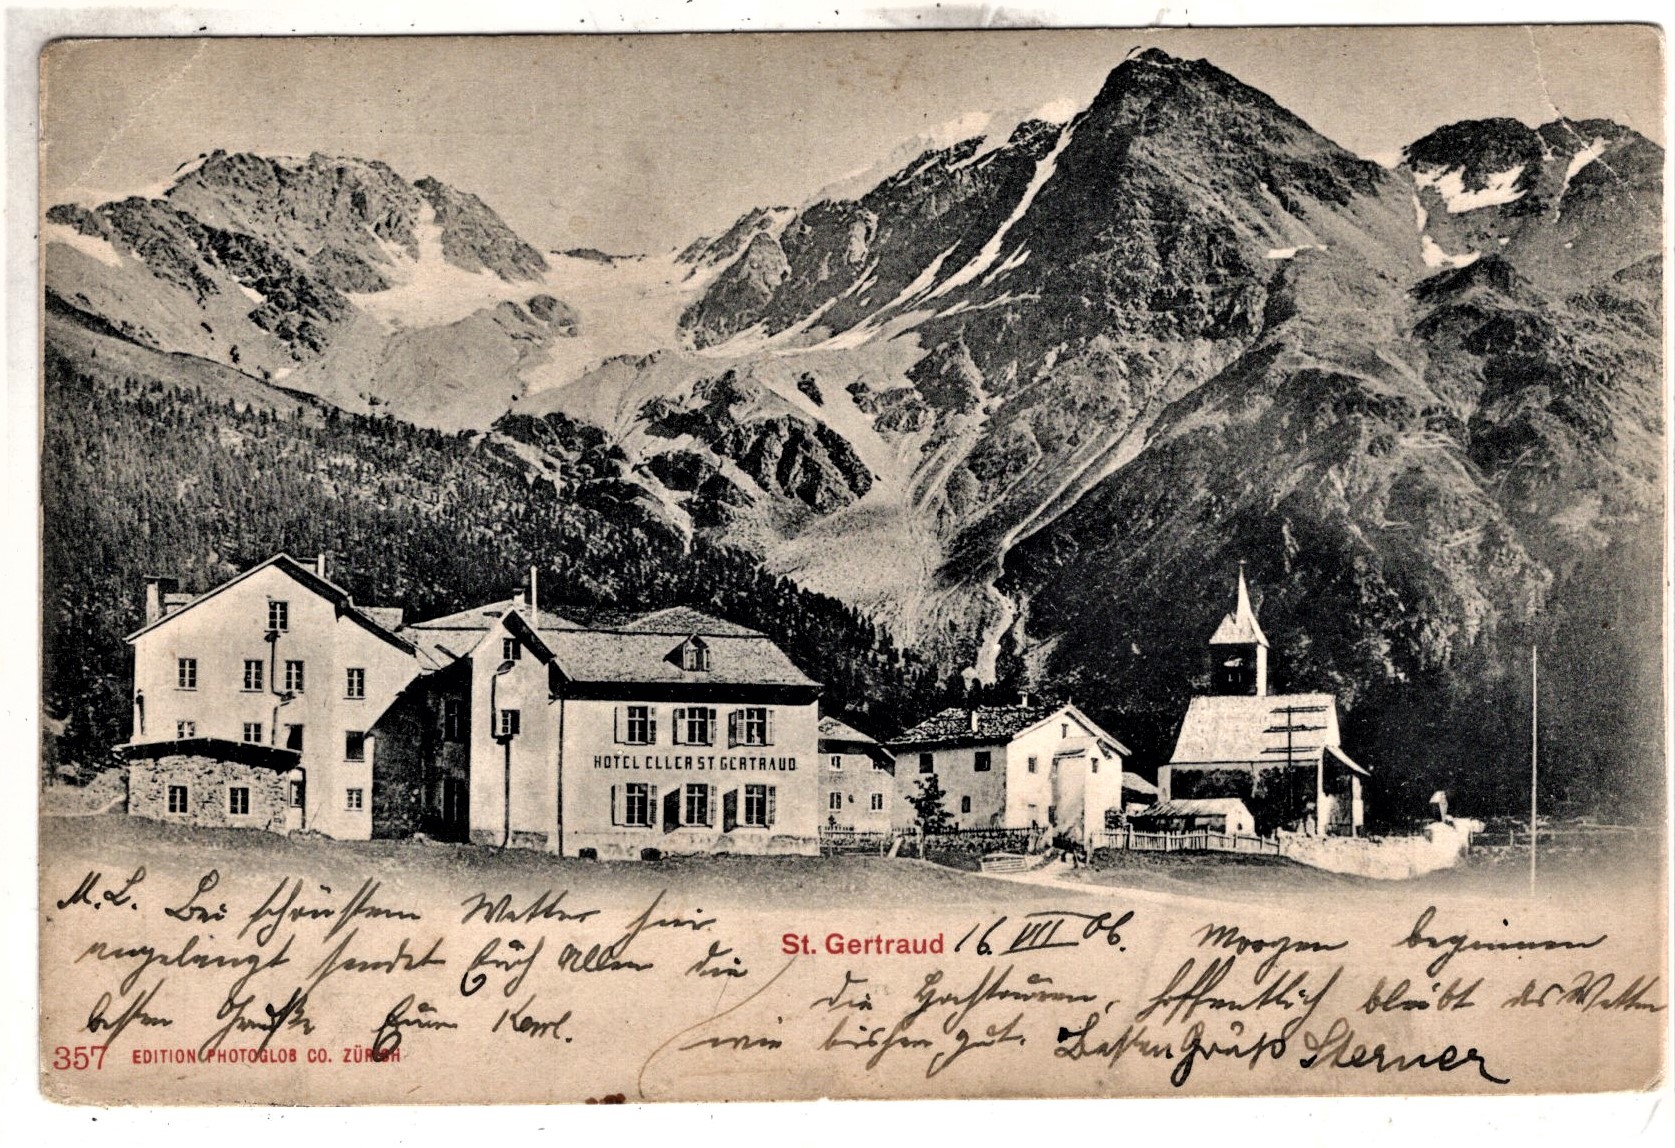 HOTEL ELLER ST GERTRAUD
M. L. Bei schönstem Wetter hier
angelangt sendet Euch Allen die
besten Grüße Euer Karl.
St. Gertraud 16. VIII 06. Morgen beginnen
die Hochtouren, hoffentlich bleibt das Wetter
wie bisher gut. Besten Gruß Sterner
357 EDITION PHOTOGLOB CO. ZÜRICH